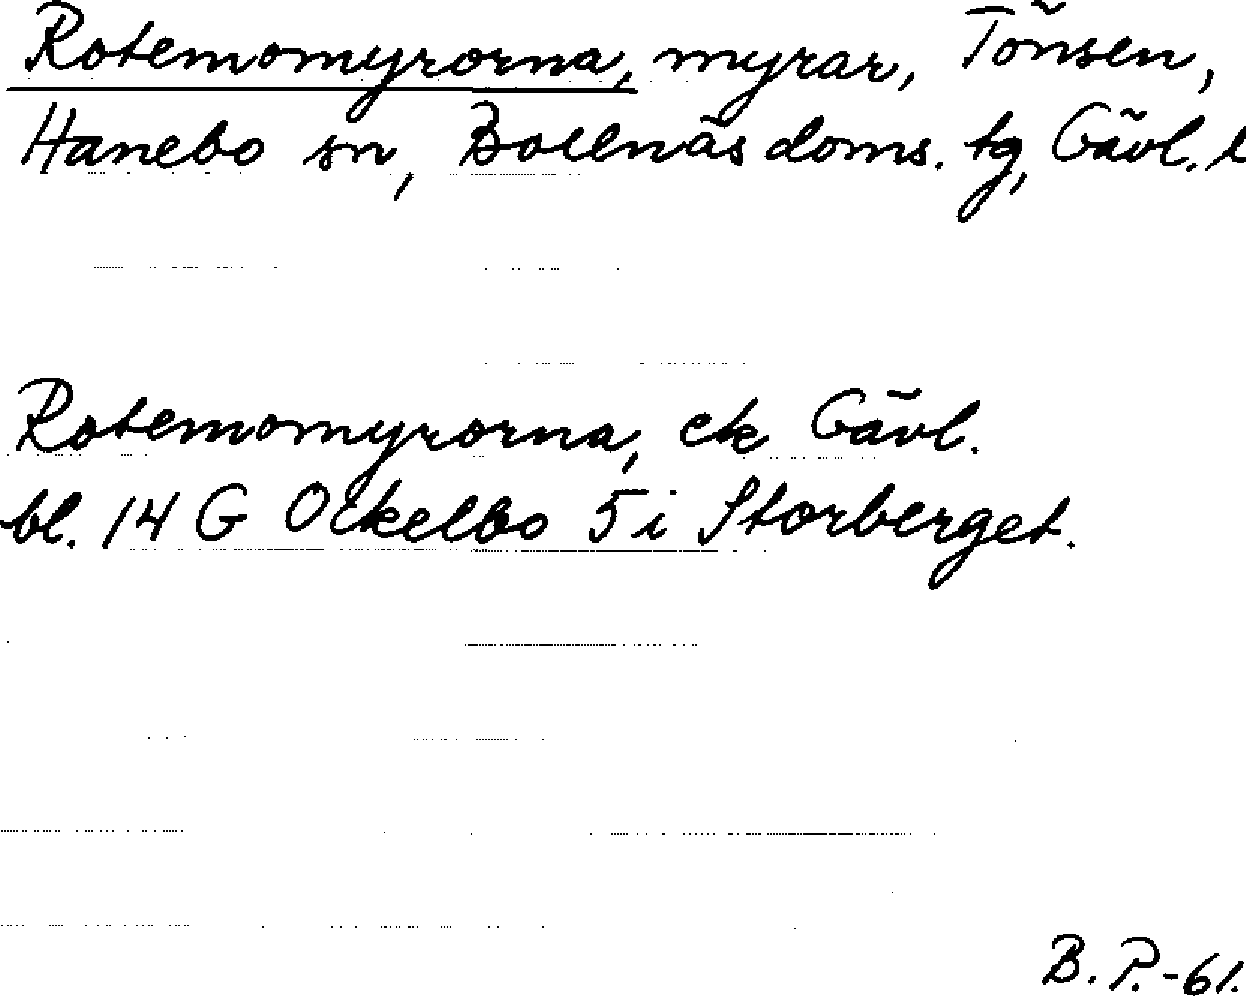 Rotemomyrorna, myrar, Tönsen,
Hanebo sn, Bollnäs doms. tg, Gävl. l
Rotemomyrorna, ek Gävl.
bl. 14 G Ockelbo 5 i Storberget.
B. P. -61.